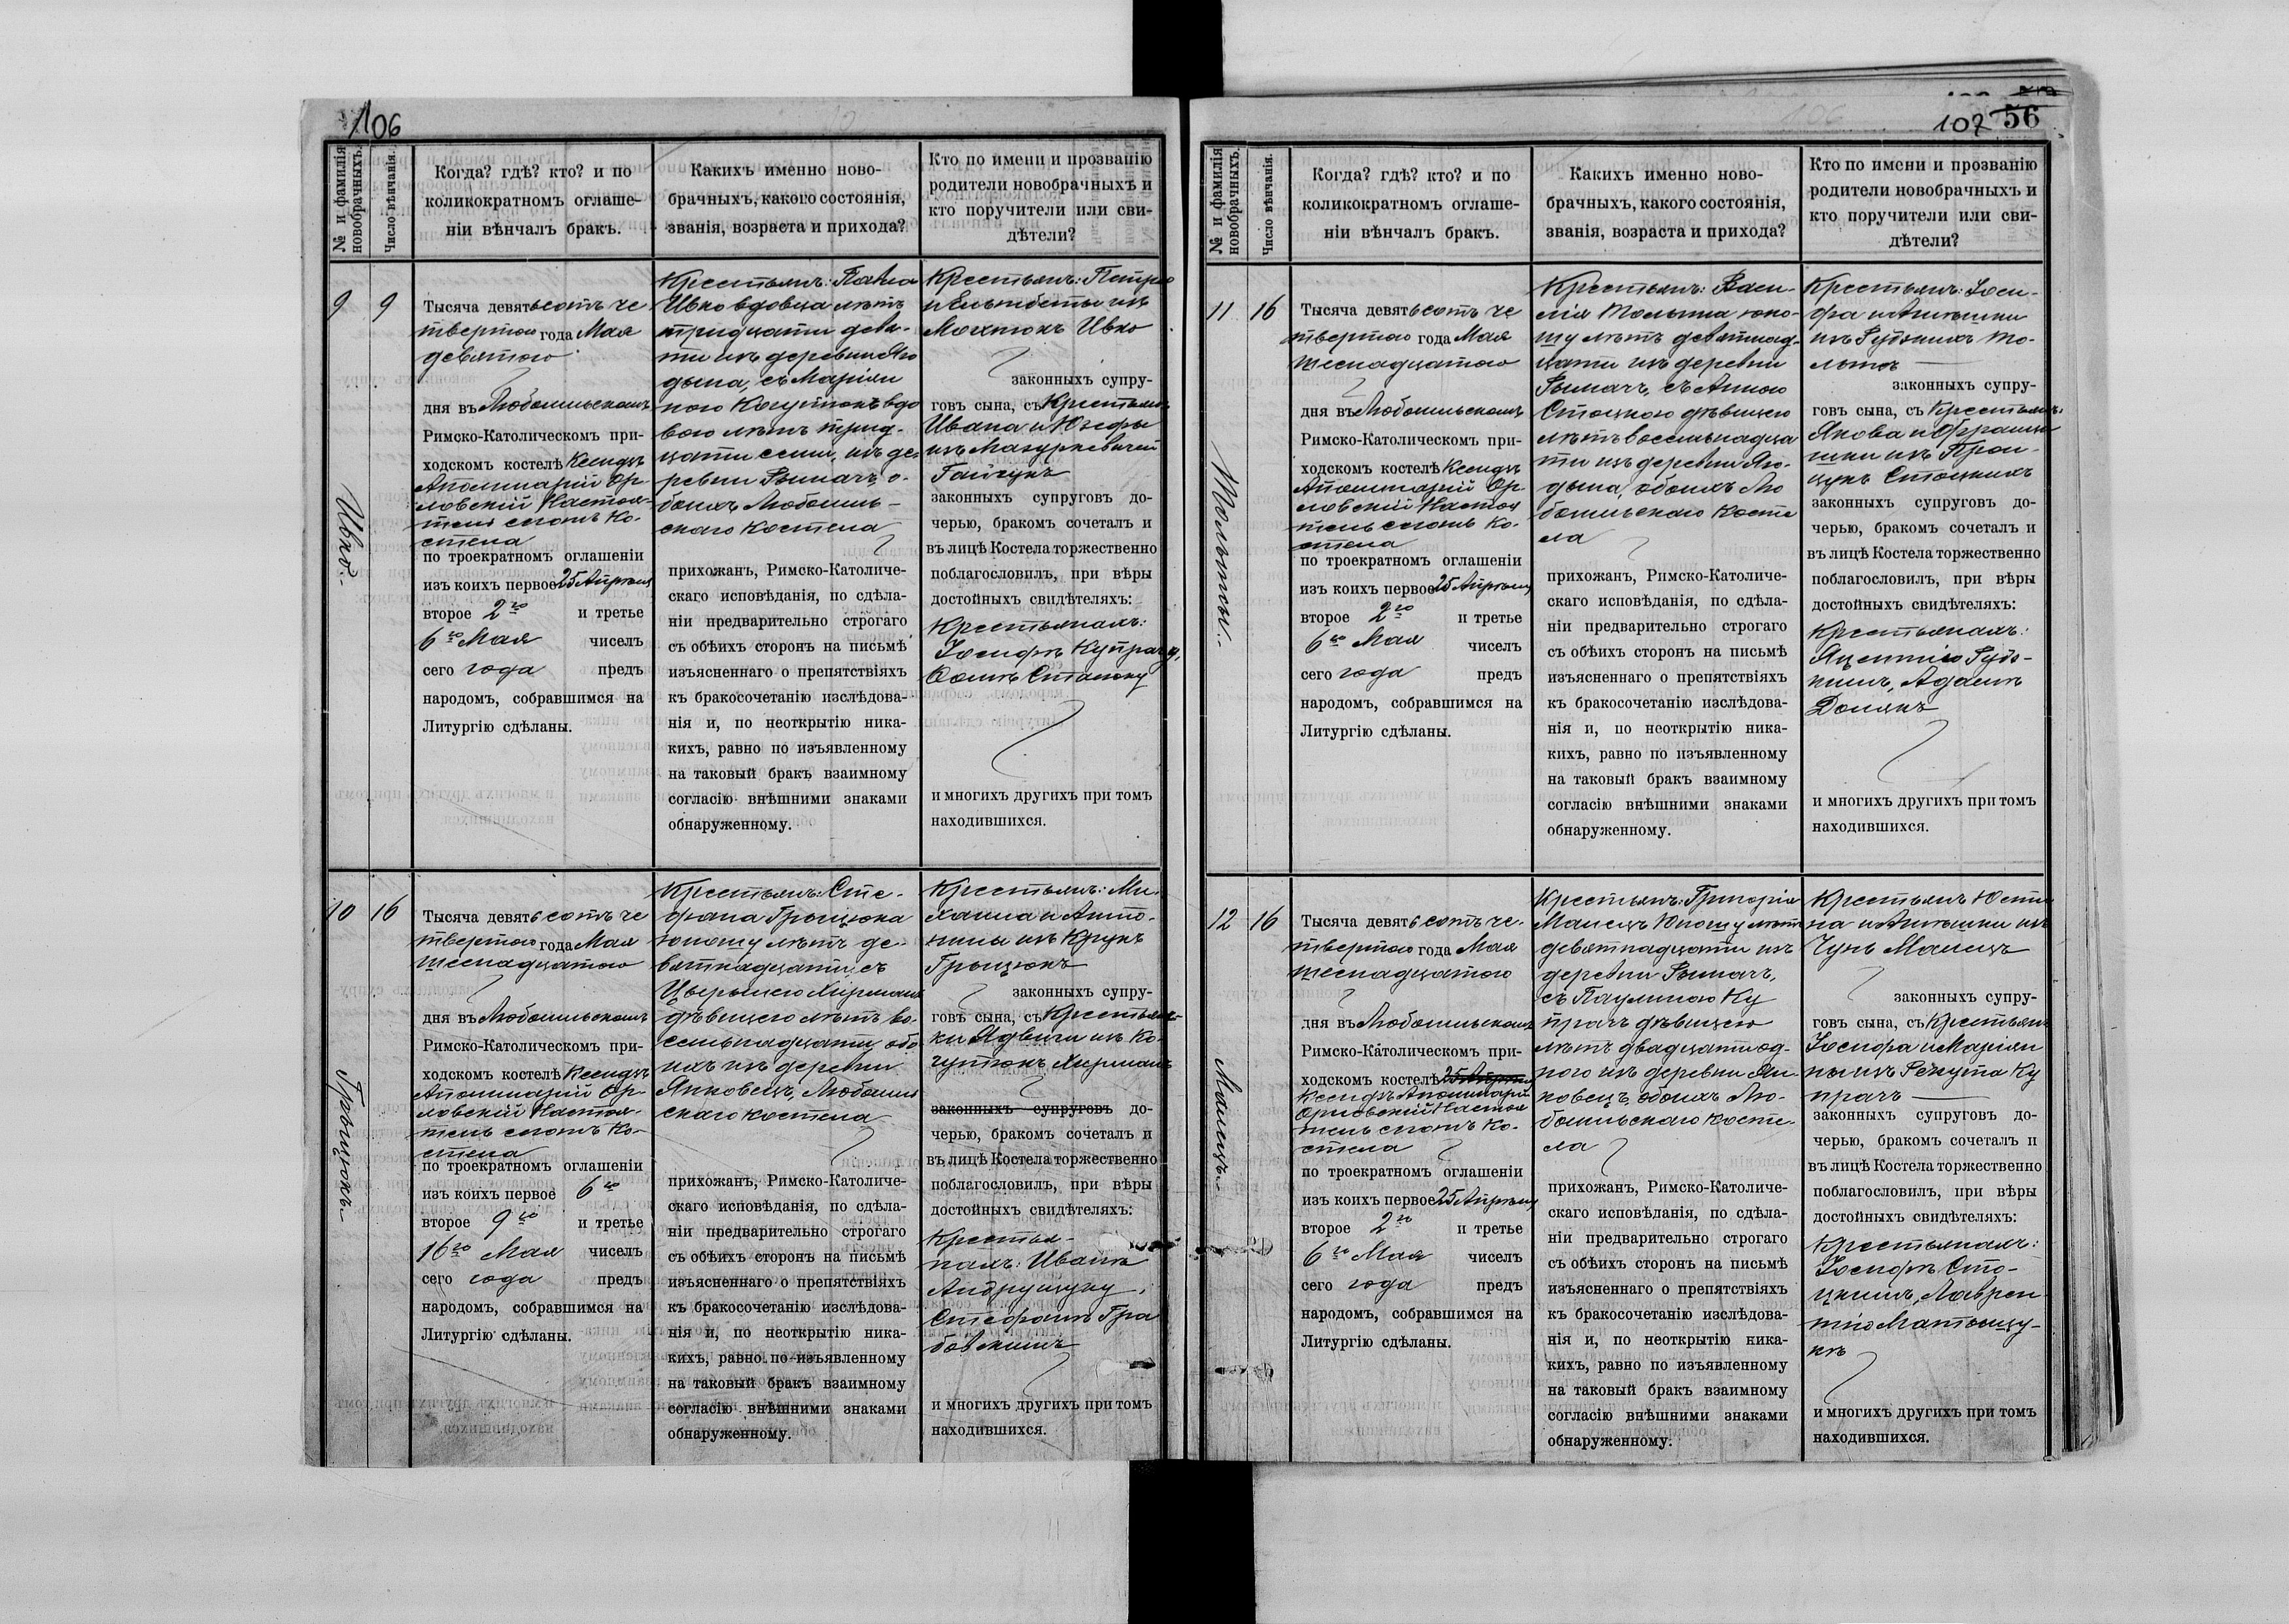 106
№ и фамилія новобрачныхъ.
Число вѣнчанія.
Когда? гдѣ? кто? и по
коликократномъ оглаше-
ніи вѣнчалъ бракъ.
Какихъ именно ново-
брачныхъ, какого состоянія,
званія, возраста и прихода?
Кто по имени и прозванію
родители новобрачныхъ и
кто поручители или сви-
дѣтели?
9
Ивко.
9
Тысяча девятьсотъ че
твертою года Мая
девятою
дня въ Любомльскомъ
Римско-Католическомъ при-
ходскомъ костелѣ Ксендзъ
Аполинарій Ор-
ловскій Настоя-
тель сего Ко-
стела
по троекратномъ оглашеніи
изъ коихъ первое 25 Апрѣля
второе 2го и третье
6го Мая чиселъ
сего года предъ
народомъ, собравшимся на
Литургію сдѣланы.
Крестьянъ: Павла
Ивко вдовца лѣтъ
тридцати девя-
ти изъ деревни Яго
дына, съ Маріян
ною Когутюкъ вдо
вою лѣтъ трид-
цати семи, изъ де-
ревни Рымачъ, о-
боихъ Любомль-
скаго костела
прихожанъ, Римско-Католиче-
скаго исповѣданія, по сдѣла-
ніи предварительно строгаго
съ обѣихъ сторонъ на письмѣ
изъясненнаго о препятствіяхъ
къ бракосочетанію изслѣдова-
нія и, по неоткрытію ника-
кихъ, равно по изъявленному
на таковый бракъ взаимному
согласію внѣшними знаками
обнаруженному.
Крестьянъ: Петра
и Ельжбеты изъ
Ивко
законныхъ супру-
говъ сына, съ Крестьянъ
Ивана и Юзефы
изъ Мазуркевичей
законныхъ супруговъ до-
черью, бракомъ сочеталъ и
въ лицѣ Костела торжественно
поблагословилъ, при вѣры
достойныхъ свидѣтеляхъ:
Крестьянахъ:
Іосифъ Купрачу,
и многихъ другихъ при томъ
находившихся.
10
Грыцюкъ
16
Тысяча девятьсотъ че
твертою года Мая
шеснадцатою
дня въ Любомльскомъ
Римско-Католическомъ при-
ходскомъ костелѣ Ксендзъ
Аполинарій Ор-
ловскій Настоя-
тель сего Ко-
стела
по троекратномъ оглашеніи
изъ коихъ первое 6го
второе 9го и третье
16го Мая чиселъ
сего года предъ
народомъ, собравшимся на
Литургію сдѣланы.
Крестьянъ: Сте-
фана Грыцюка
юношу лѣтъ де-
вятнадцати, съ
дѣвицею лѣтъ во-
семьнадцати, обо
ихъ изъ деревни
Янковецъ, Любомль
скаго костела
прихожанъ, Римско-Католиче-
скаго исповѣданія, по сдѣла-
ніи предварительно строгаго
съ обѣихъ сторонъ на письмѣ
изъясненнаго о препятствіяхъ
къ бракосочетанію изслѣдова-
нія и, по неоткрытію ника-
кихъ, равно по изъявленному
на таковый бракъ взаимному
согласію внѣшними знаками
обнаруженному.
Крестьянъ: Ми-
хаила и Анто-
нины изъ Крукъ
Грыцюкъ
законныхъ супру-
говъ сына, съ Крестьян-
ки Ядвиги изъ Ко-
гутюкъ
законныхъ супруговъ до-
черью, бракомъ сочеталъ и
въ лицѣ Костела торжественно
поблагословилъ, при вѣры
достойныхъ свидѣтеляхъ:
Крестья-
нахъ: Иванъ
Андрущуку,
Стефанъ Гра
бовскимъ
и многихъ другихъ при томъ
находившихся.
107 56
№ и фамилія новобрачныхъ.
Число вѣнчанія.
Когда? гдѣ? кто? и по
коликократномъ оглаше-
ніи вѣнчалъ бракъ.
Какихъ именно ново-
брачныхъ, какого состоянія,
званія, возраста и прихода?
Кто по имени и прозванію
родители новобрачныхъ и
кто поручители или сви-
дѣтели?
11
16
Тысяча девятьсотъ че
твертою года Мая
шеснадцатою
дня въ Любомльскомъ
Римско-Католическомъ при-
ходскомъ костелѣ Ксендзъ
Аполинарій Ор-
ловскій Настоя
тель сего Ко-
стела
по троекратномъ оглашеніи
изъ коихъ первое 25 Апрѣля
второе 2го и третье
6го Мая чиселъ
сего года предъ
народомъ, собравшимся на
Литургію сдѣланы.
Крестьянъ: Васи-
лія юно-
шу лѣтъ девятнад-
цати изъ деревни
Рымачъ, съ Анною
Стоцкою дѣвицею
лѣтъ восемьнадца
ти изъ деревни Яго-
дына, обоихъ Лю
бомльскаго косте
ла
прихожанъ, Римско-Католиче-
скаго исповѣданія, по сдѣла-
ніи предварительно строгаго
съ обѣихъ сторонъ на письмѣ
изъясненнаго о препятствіяхъ
къ бракосочетанію изслѣдова-
нія и, по неоткрытію ника-
кихъ, равно по изъявленному
на таковый бракъ взаимному
согласію внѣшними знаками
обнаруженному.
Крестьянъ: Іоси-
фа и Анѣшки
законныхъ супру-
говъ сына, съ Крестьянъ:
Якова и Францы-
шки изъ
Стоцкихъ
законныхъ супруговъ до-
черью, бракомъ сочеталъ и
въ лицѣ Костела торжественно
поблагословилъ, при вѣры
достойныхъ свидѣтеляхъ:
Крестьянахъ:
Адамъ
и многихъ другихъ при томъ
находившихся.
12
Малецъ
16
Тысяча девятьсотъ че-
твертою года Мая
шеснадцатою
дня въ Любомльскомъ
Римско-Католическомъ при-
ходскомъ костелѣ 25 Апрѣля
Ксендзъ Аполинарій
Орловскій Настоя
тель сего Ко-
стела
по троекратномъ оглашеніи
изъ коихъ первое 25 Апрѣля
второе 2го и третье
6го Мая чиселъ
сего года предъ
народомъ, собравшимся на
Литургію сдѣланы.
Крестьянъ: Григорія
Малецъ Юношу лѣтъ
девятнадцати изъ
деревни Рымачъ,
съ Паулиною Ку
прачъ дѣвицею
лѣтъ двадцати од-
ного изъ деревни Ян-
ковецъ, обоихъ Лю-
бомльскаго косте-
ла
прихожанъ, Римско-Католиче-
скаго исповѣданія, по сдѣла-
ніи предварительно строгаго
съ обѣихъ сторонъ на письмѣ
изъясненнаго о препятствіяхъ
къ бракосочетанію изслѣдова-
нія и, по неоткрытію ника-
кихъ, равно по изъявленному
на таковый бракъ взаимному
согласію внѣшними знаками
обнаруженному.
Крестьянъ Юсти
на и Анѣшки изъ
Малецъ
законныхъ супру-
говъ сына, съ Крестьянъ
Іосифа и Маріян
ны изъ Ку
прачъ
законныхъ супруговъ до-
черью, бракомъ сочеталъ и
въ лицѣ Костела торжественно
поблагословилъ, при вѣры
достойныхъ свидѣтеляхъ:
Крестьянахъ:
Іосифъ Сто-
цкимъ, Лаврен
тію Матвѣщу-
къ
и многихъ другихъ при томъ
находившихся.